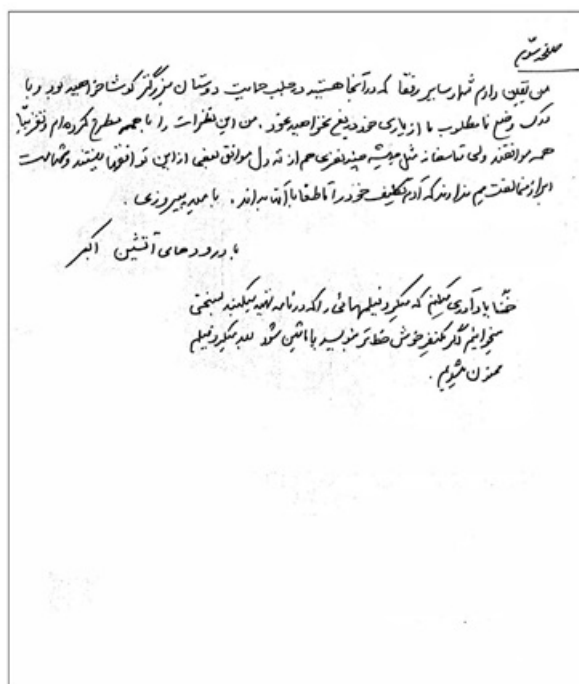 صفحه سوم
من یقین دارم شما و سایر رفقا که در آنجا هستید در جلب حمایت دوستان بزرگتر کوشا خواهید بود و با
درک وضع نامطلوب ما از یاری خود دریغ نخواهید نمود. من این نظرات را با همه مطرح کرده‌ام و تقریباً
همه موافقند ولی متاسفانه مثل همیشه چند نفری هم از ته دل موافق بعضی از این توافقها نیستند و شهامت
ابراز مخالفت هم ندارند که آدم تکلیف خود را قاطعاً با آنان بداند. با امید پیروزی.
با درودهای آتشین اکبر
ضمناً یادآوری میکنم که میکروفیلمهائی را که در نامه تهیه میکنند بسختی
میخوانیم اگر یکنفر خوش خط‌تر بنویسد یا ماشین شود بعد میکروفیلم
ممنون میشویم.